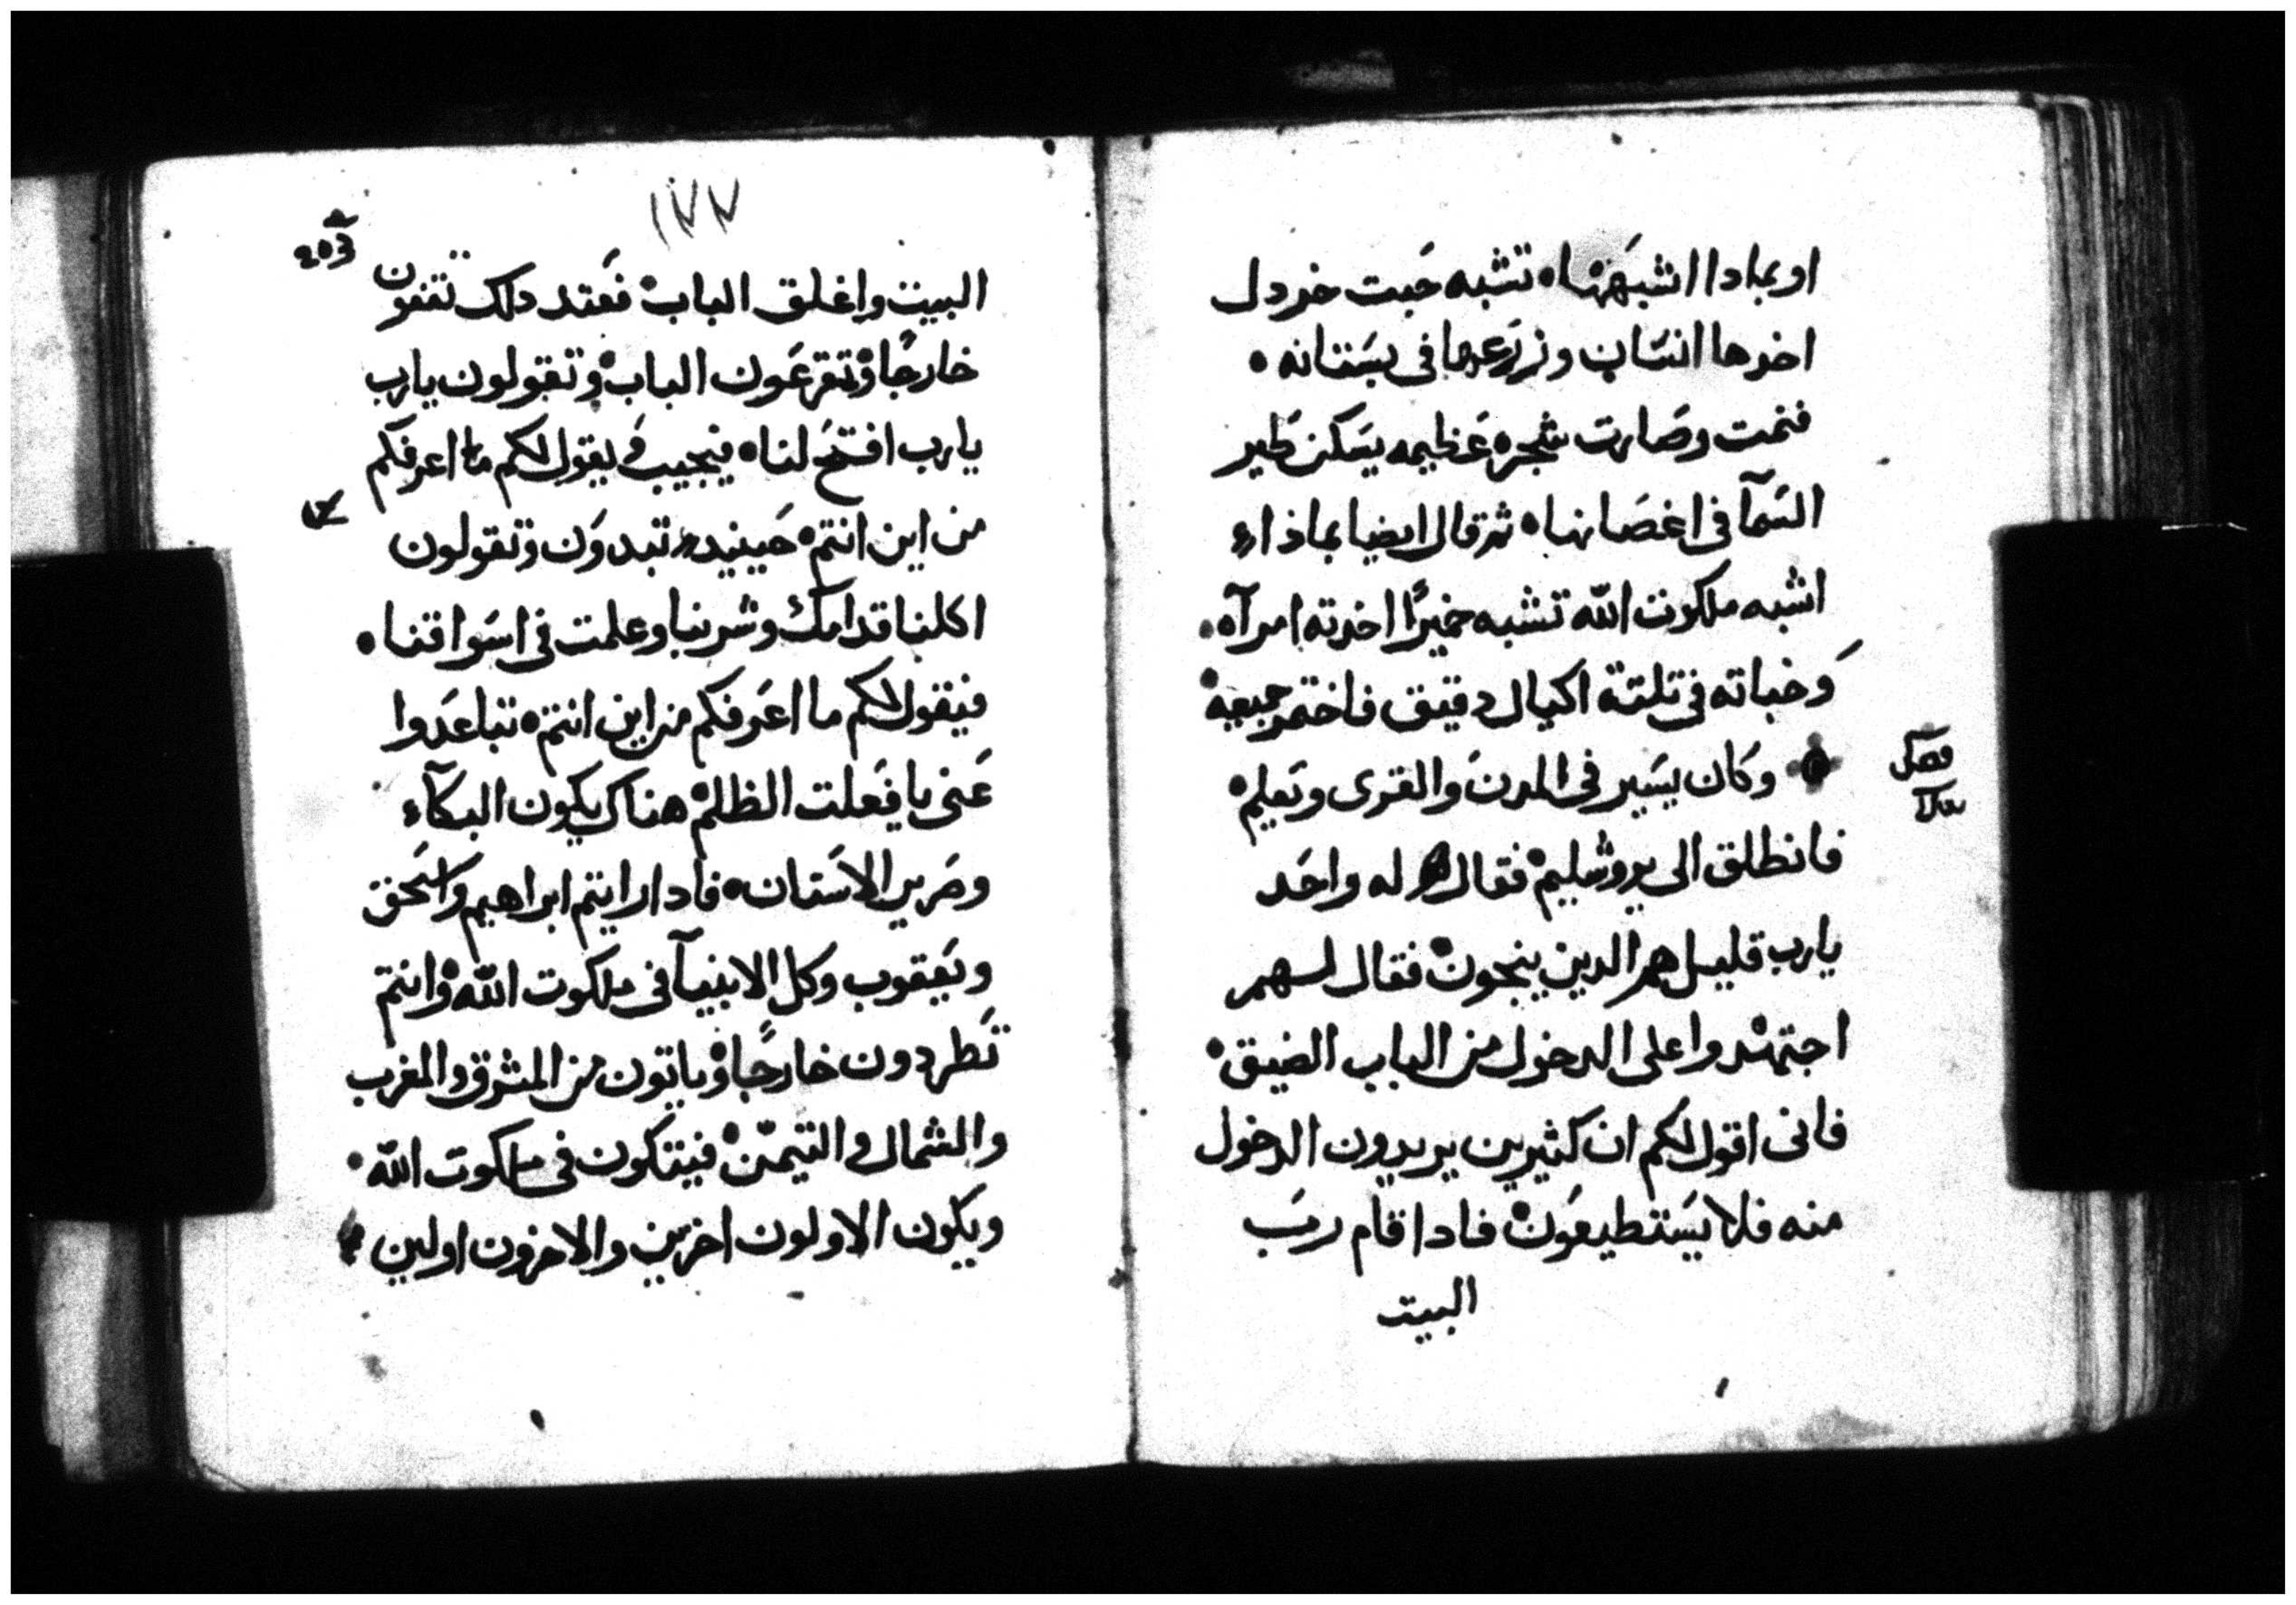 او بمادا اشبهها • تشبه حَبت خردل
اخدها انسَان وزرعها فى بسَتانه •
فنمت وصَارت شجره عَظيمه يسَكن طَير
السَمآ فى اغصَانها • ثم قال ايضا بماذاء
اشبه ملكوت الله تشبه خميرًا اخدته امرآه •
وَخباته فى تلتة اكيال دقيق فاختمر جميعه •
فصَل
• وكان يسَير فى المدن والقرى ويَعلم •
فانطلق الى يروشليم • فقال له واحَد
يارب قليل هم الدين ينجون • فقال لهم
اجتهدوا على الدخول من الباب الضيق •
فانى اقول لكم ان كثيرين يريدون الدخول
منه فلا يسَتطيعَون • فادا قام ربَ
البيت
١٧٧
البيت واغلق الباب • فعَند دلك تقفون
خارجًا • وتقرعَون الباب • وتقولون يارب
يارب افتحَ لنا • فيجيب وَيقول لكم ما اعرفكم
من اين انتم • حَينيد تبدوَن وتقولون
اكلنا قدامك وشربنا وعلمت فى اسَواقنا •
فيقول لكم ما اعَرفكم من اين انتم • تباعَدوا
عَنى يا فعَلت الظلم • هناك يكون البكآء
وصَرير الاسَنان • فادا رايتم ابراهيم واسَحق
ويَعقوب وكل الانبيآ فى ملكوت الله • وانتم
تَطردون خارجًا • وياتون من المشرق والمغرب
والشمال والتيمن • فيتكون فى ملكوت الله •
ويكون الاولون اخرين والاخرون اولين